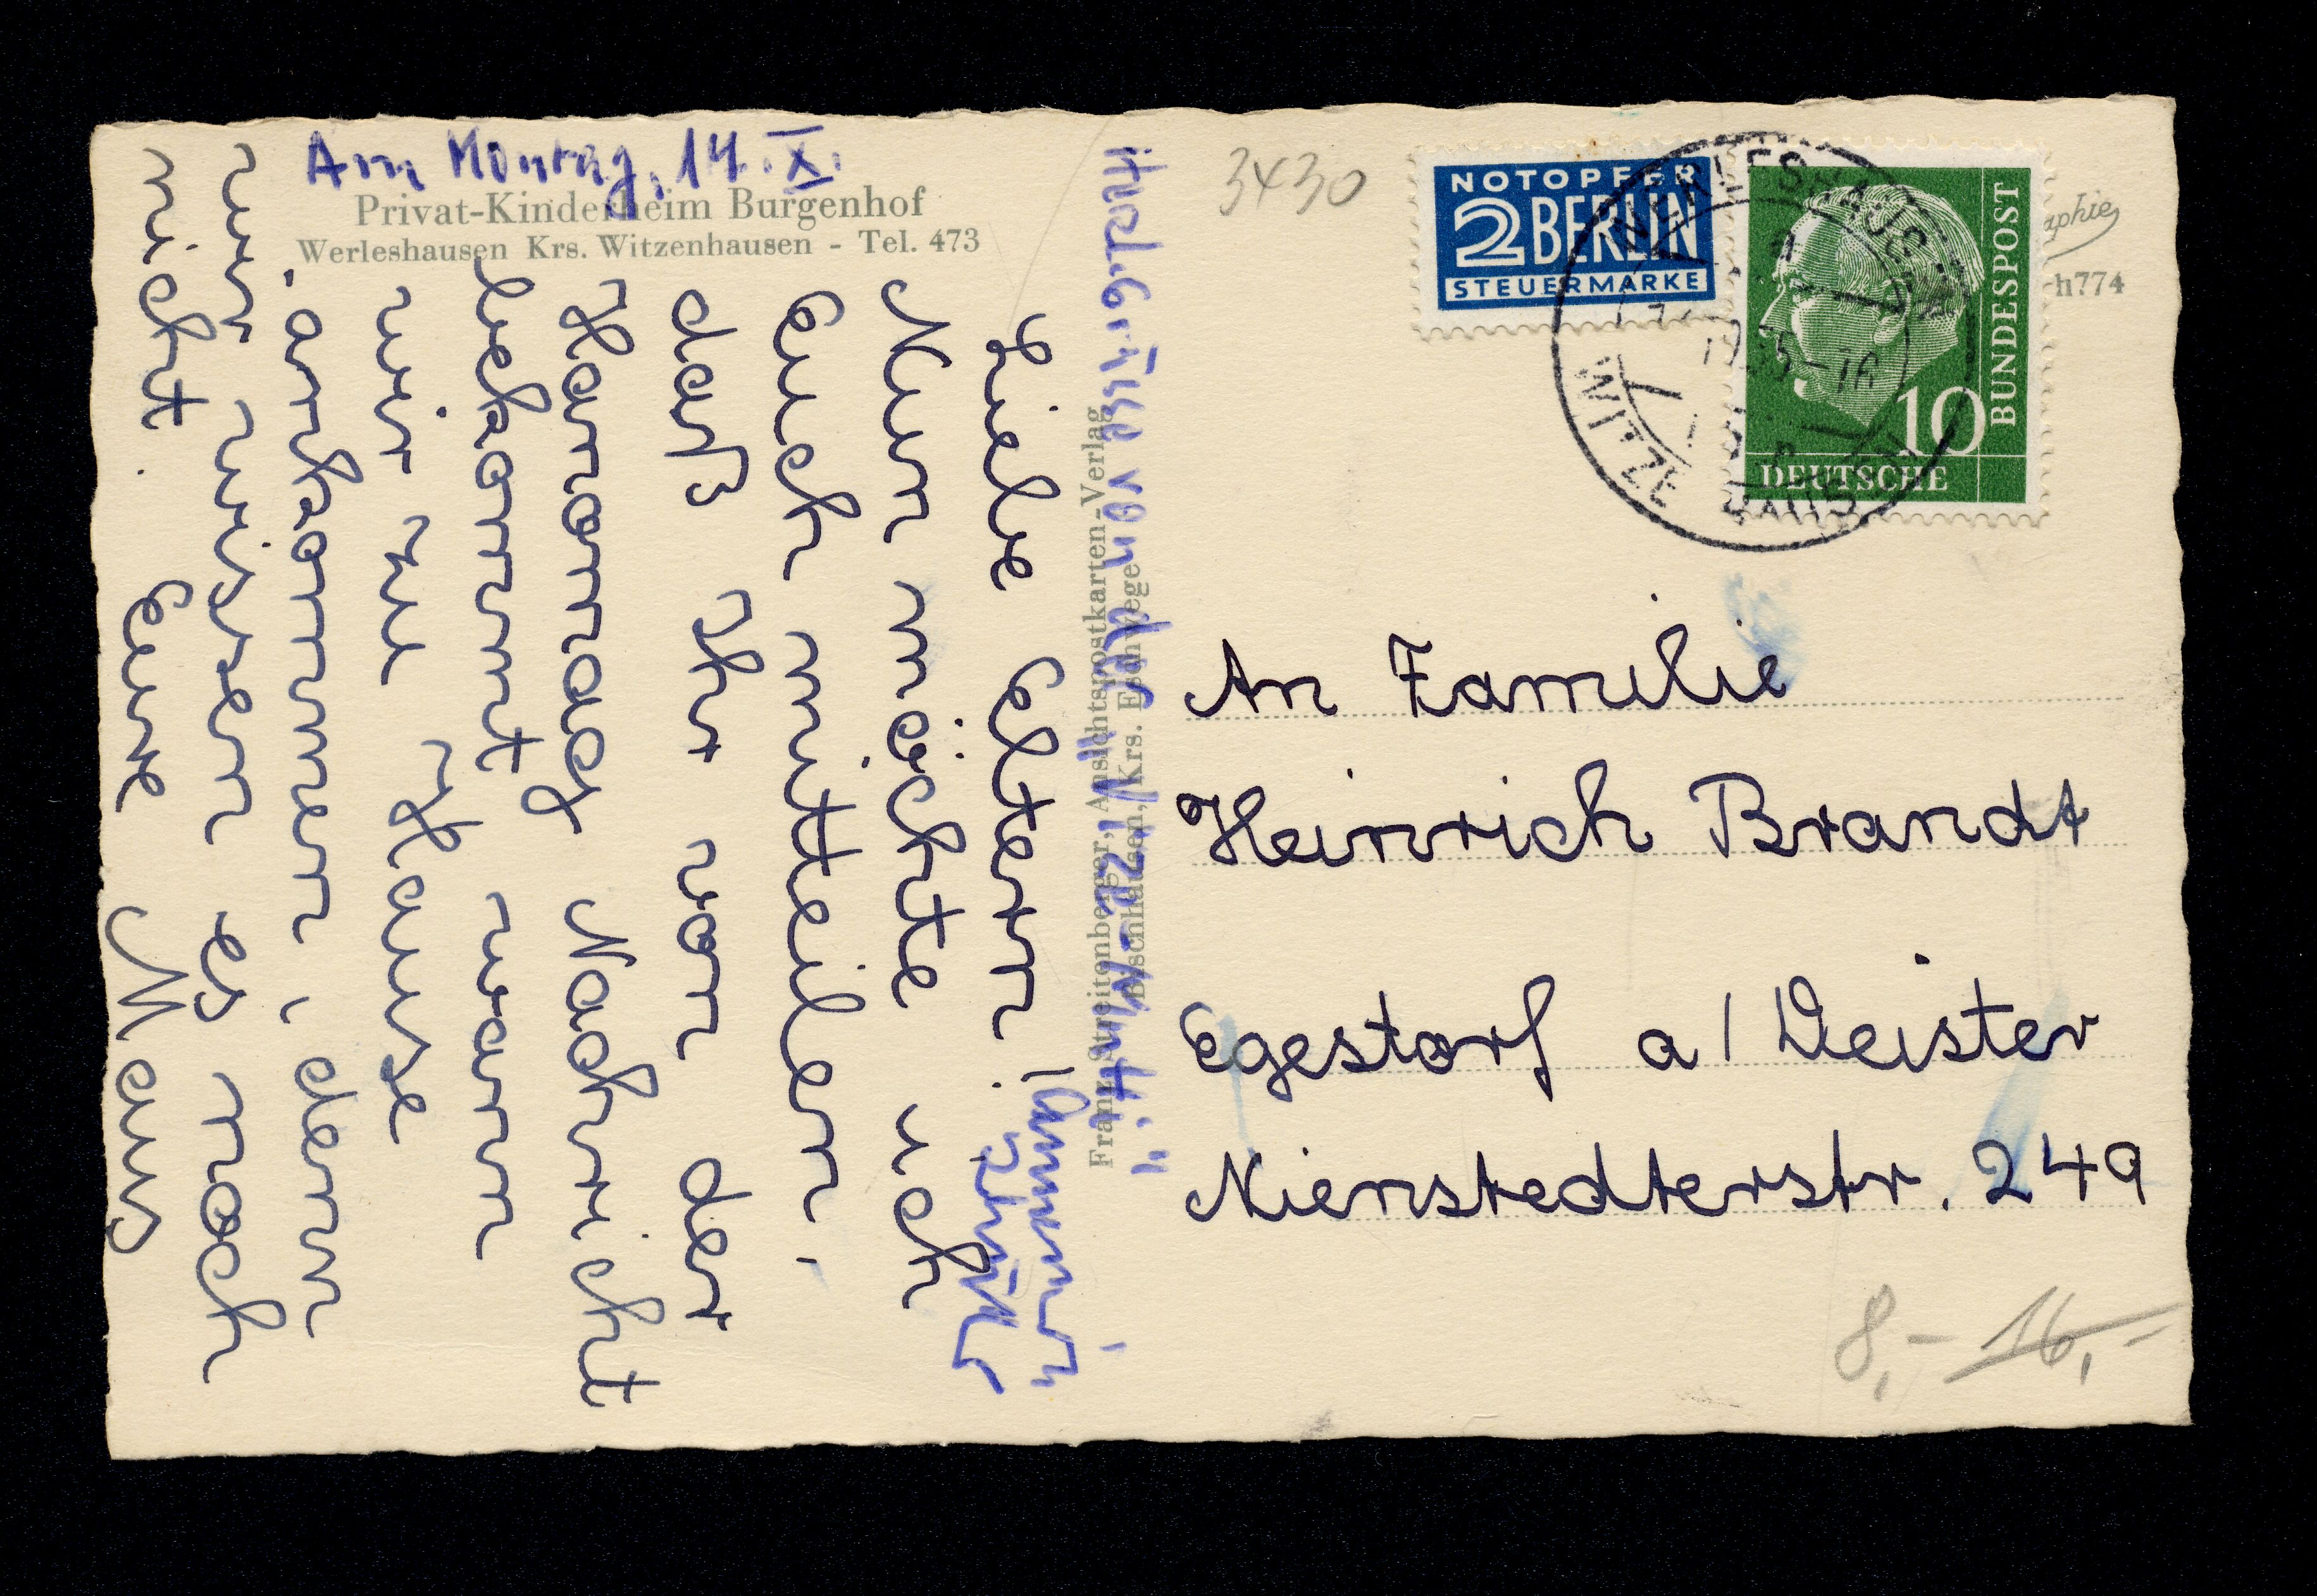 Am Montag, 14. X.
Privat-Kinderheim Burgenhof
Werleshausen Krs. Witzenhausen - Tel. 473
Liebe Eltern!
Nun möchte ich
Euch mitteilen,
daß Ihr von der
Hanomag Nachricht
bekommt wann
wir zu Hause
ankommen, denn
wir wissen es noch
nicht. Eure Maus
Herbergrüsse von
Ansichtspostkarten-Verlag
Krs. Eschwege
3430
NOTOPFER
2 BERLIN
STEUERMARKE
WERLESHAUSEN
WITZENHAUSEN
DEUTSCHE
BUNDESPOST
10
h774
An Familie
Heinrich Brandt
Egestorf a/Deister
Nienstedterstr. 249
8,- 16,-